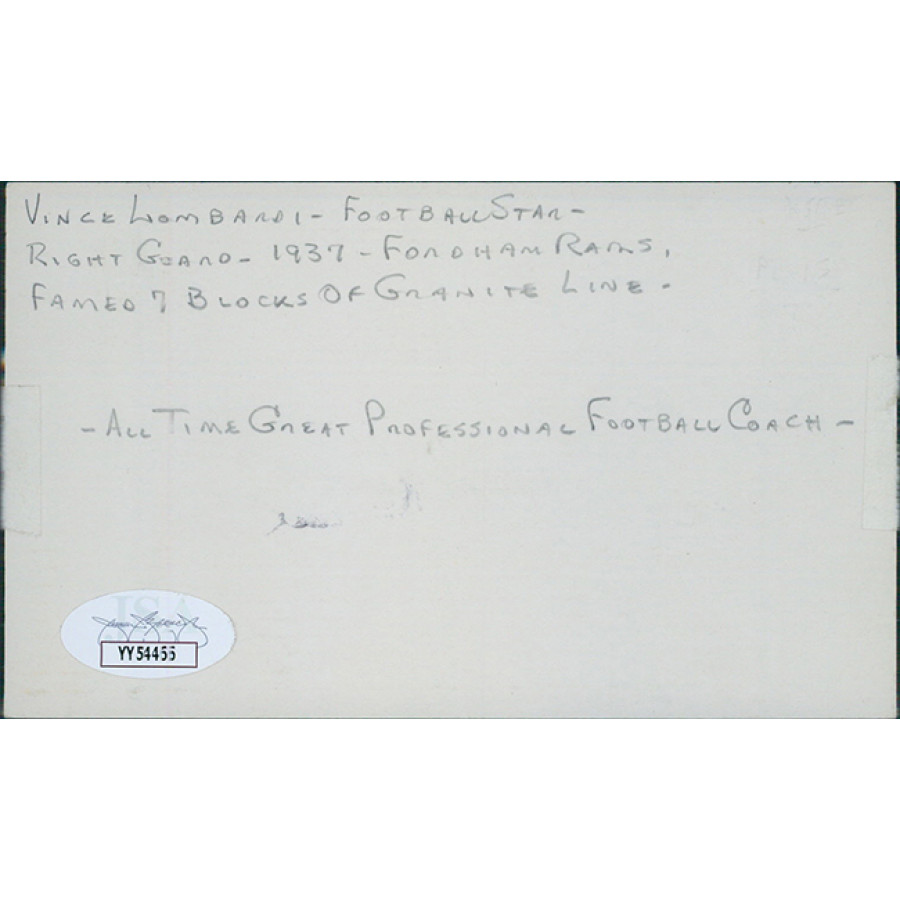 Vince Lombardi - Football Star -
Right Guard - 1937 - Fordham Rams,
Famed 7 Blocks Of Granite Line -
- All Time Great Professional Football Coach -
JSA
YY54455